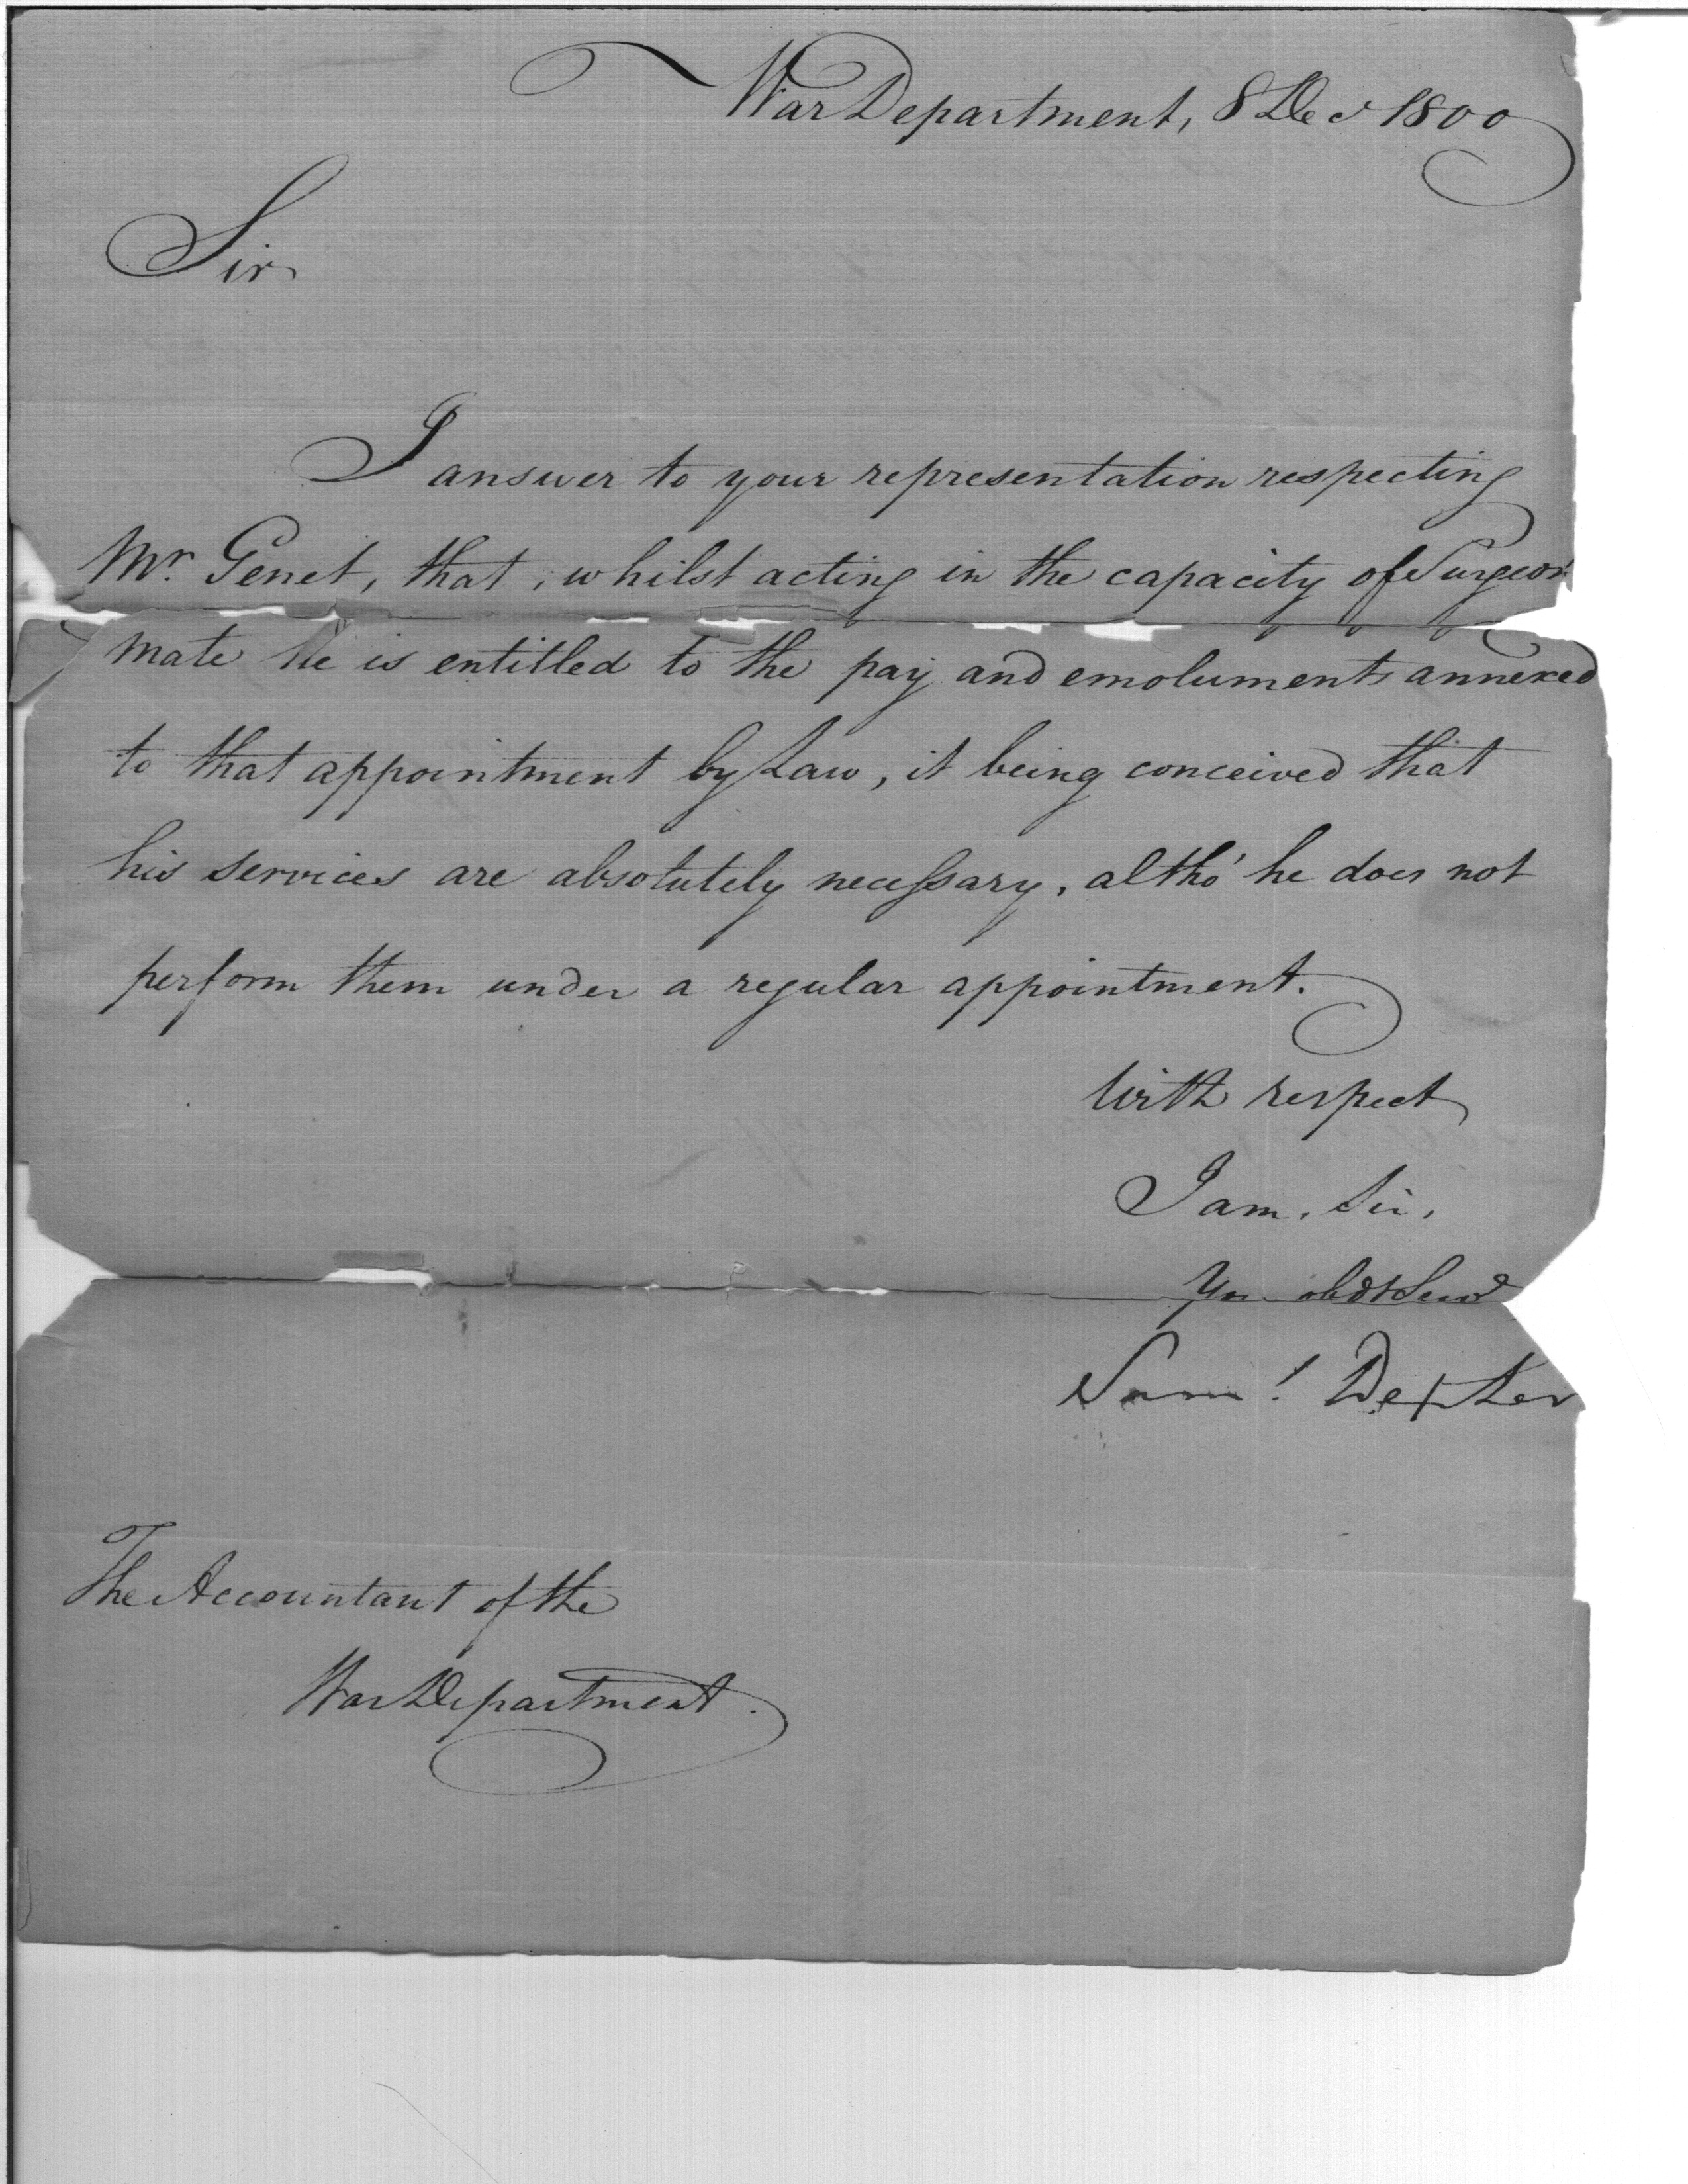 War Department, 8 Dec 1800
Sir
I answer to your representation respecting
Mr. Genet, that, whilst acting in the capacity of Surgeon
mate he is entitled to the pay and emoluments annexed
to that appointment by Law, it being conceived that
his services are absolutely necessary, altho' he does not
perform them under a regular appointment.
With respect
I am, Sir,
You obdt Servt
Saml Dexter
The Accountant of the
War Department.